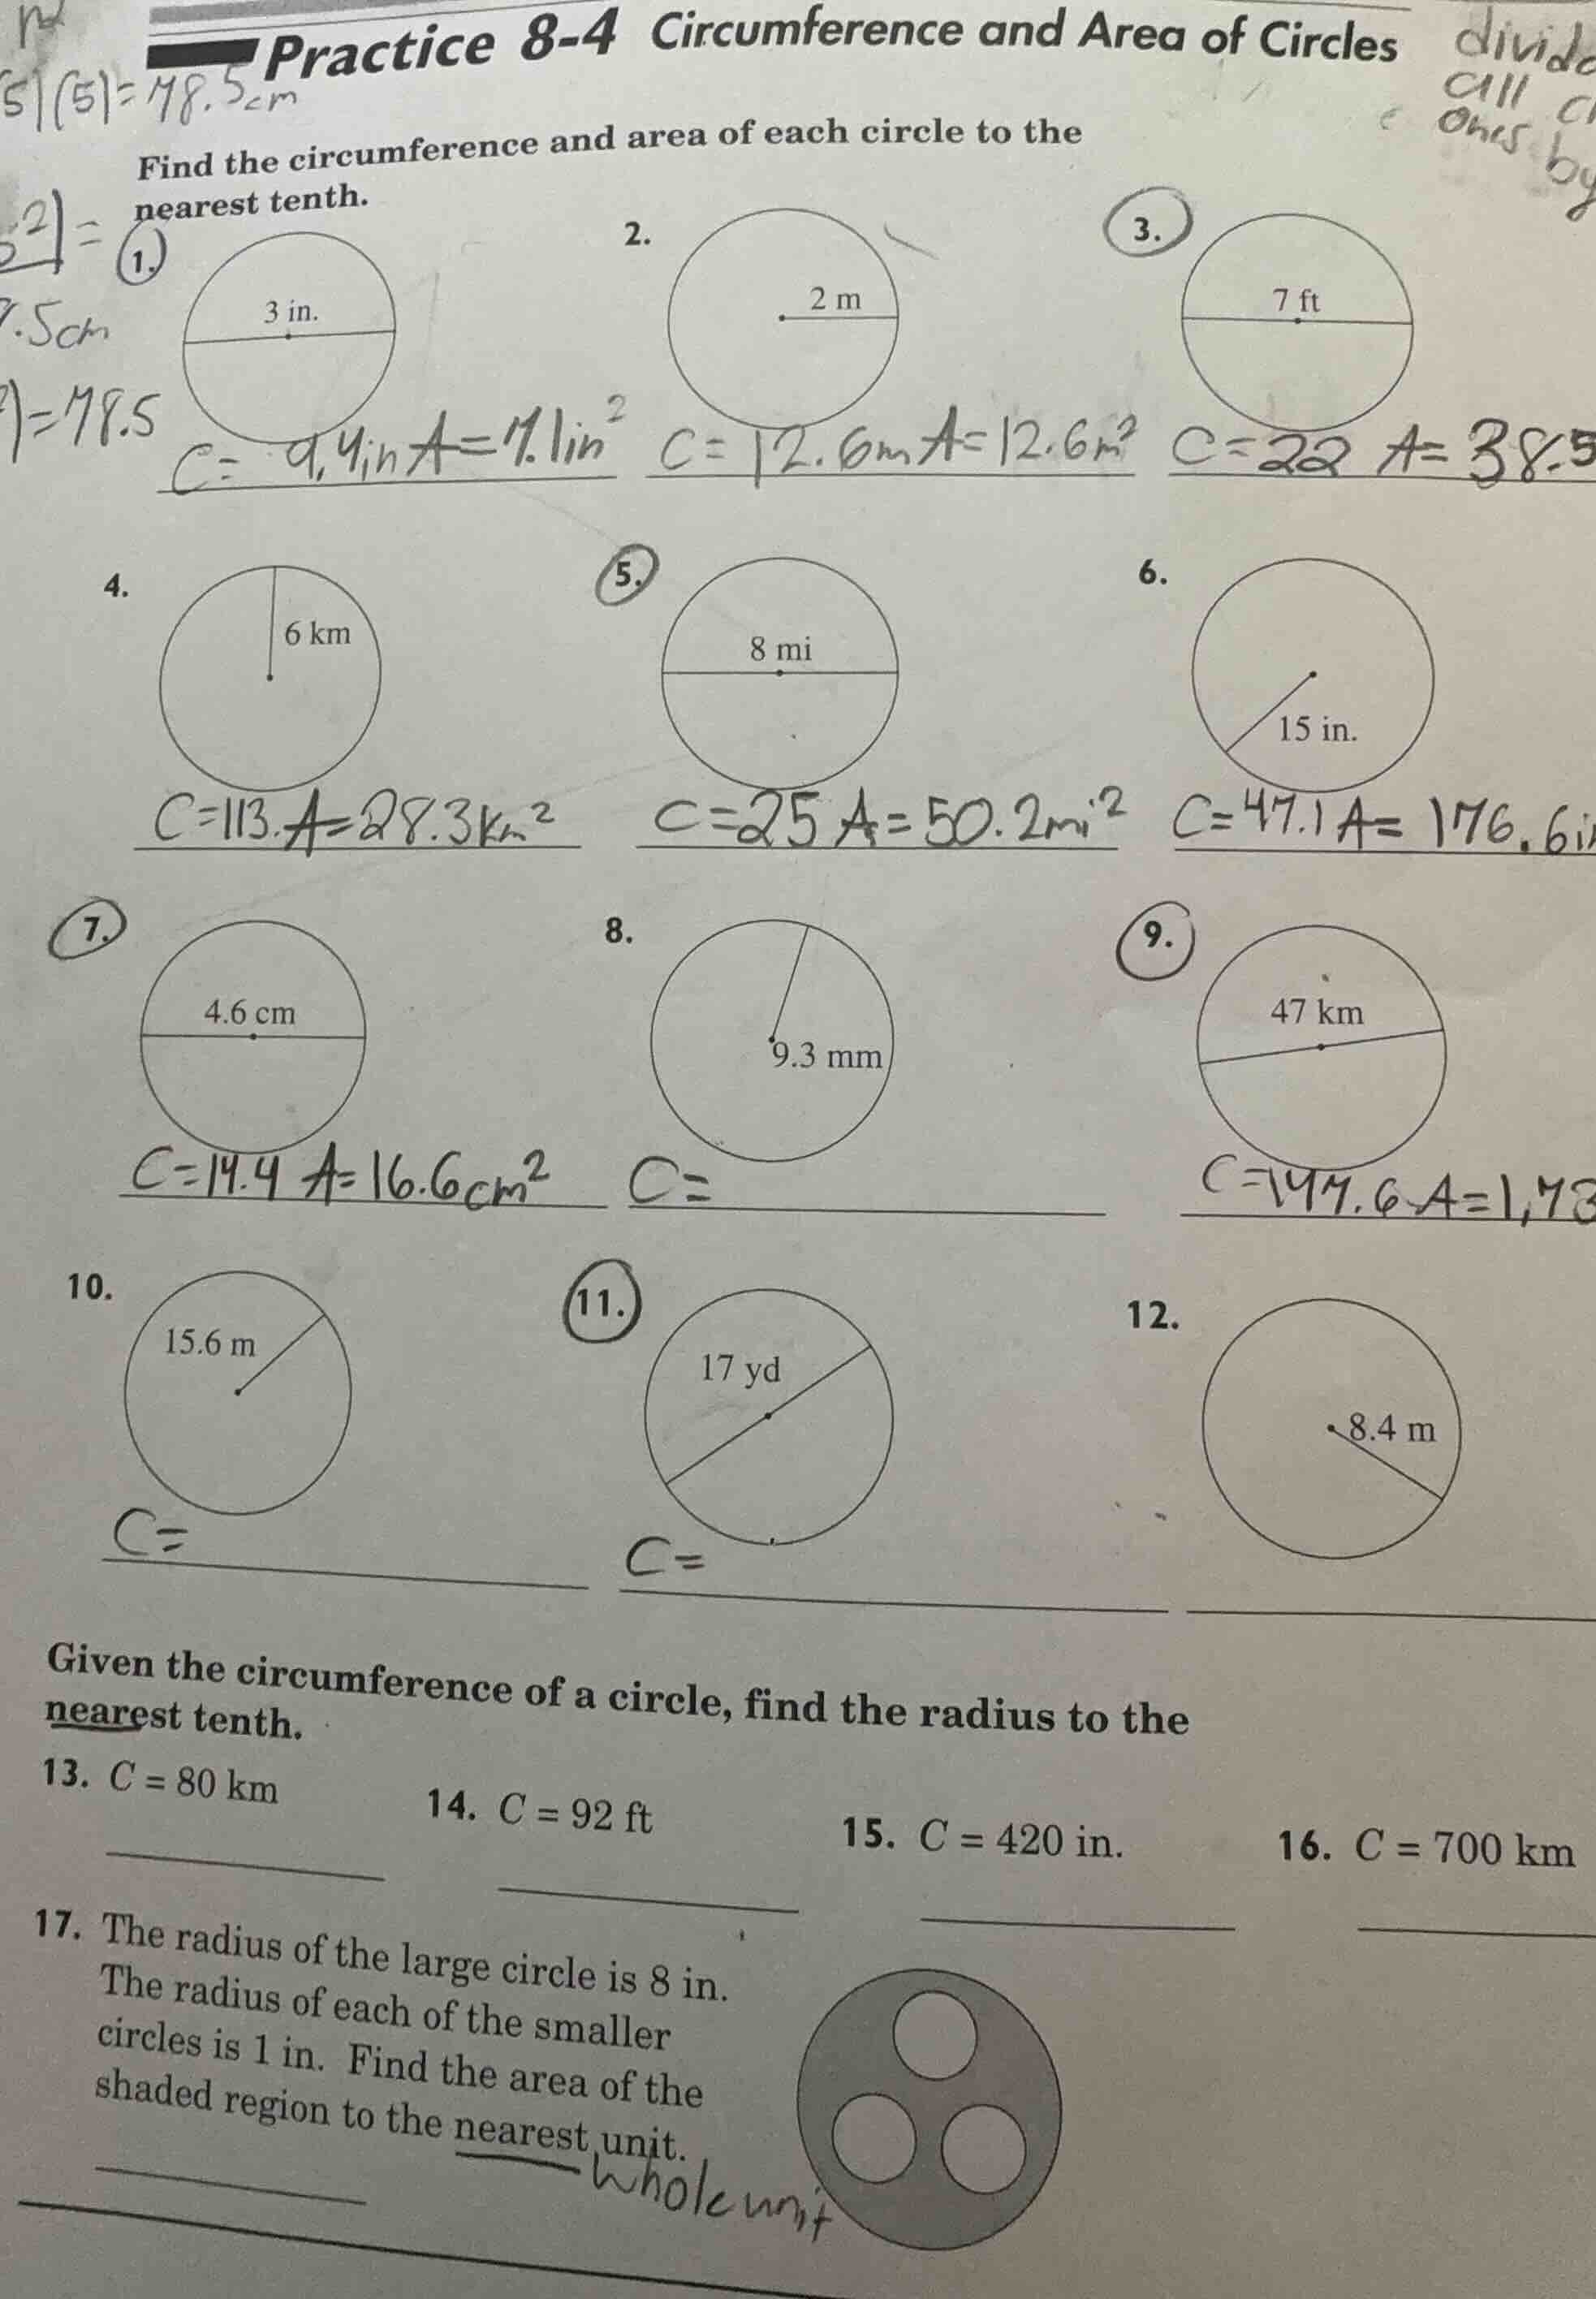 Practice 8-4 Circumference and Area of Circles
all
ones by
5)(5)=78.5cm
Find the circumference and area of each circle to the
nearest tenth.
1. 3 in.
2. 2 m
3. 7 ft
.5cm
)=78.5
C= 9.4in A=7.1in²
C=12.6m A=12.6m²
C=22 A=38.5
4. 6 km
5. 8 mi
6. 15 in.
C=113. A=28.3km²
C=25 A=50.2mi²
C=47.1 A=176.6in
7. 4.6 cm
8. 9.3 mm
9. 47 km
C=14.4 A=16.6cm²
C=
C=147.6 A=1,73
10. 15.6 m
11. 17 yd
12. 8.4 m
C=
C=
Given the circumference of a circle, find the radius to the
nearest tenth.
13. C = 80 km
14. C = 92 ft
15. C = 420 in.
16. C = 700 km
17. The radius of the large circle is 8 in.
The radius of each of the smaller
circles is 1 in. Find the area of the
shaded region to the nearest unit.
whole unit